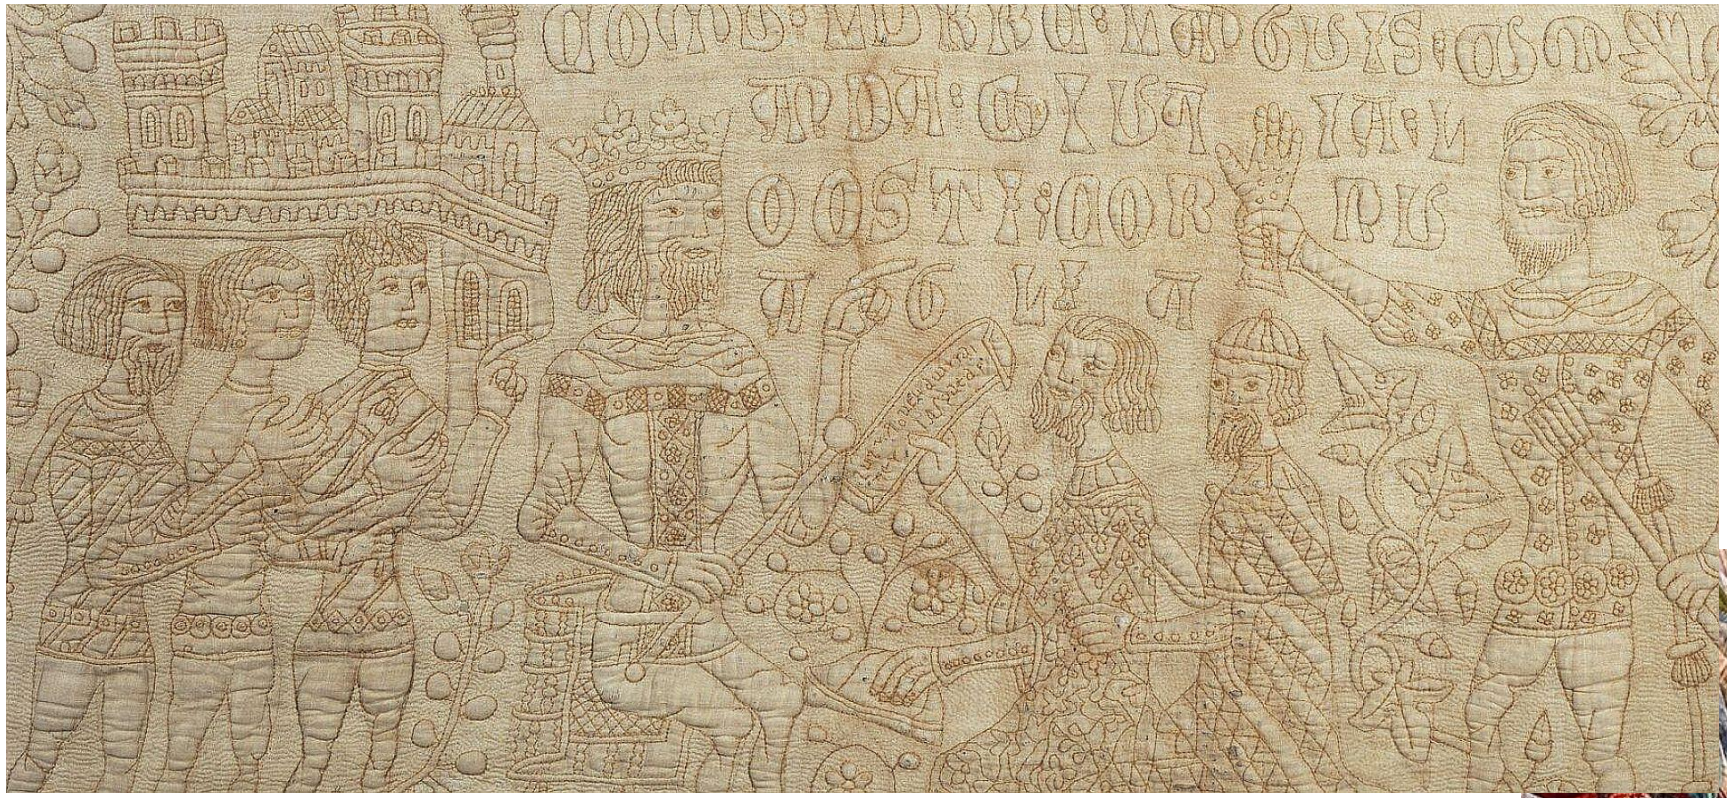 COMU: LU RRE: LANGUIS: CUM
ANDA: CHI UAIA: L
O OSTI: CORNU
AGLIA